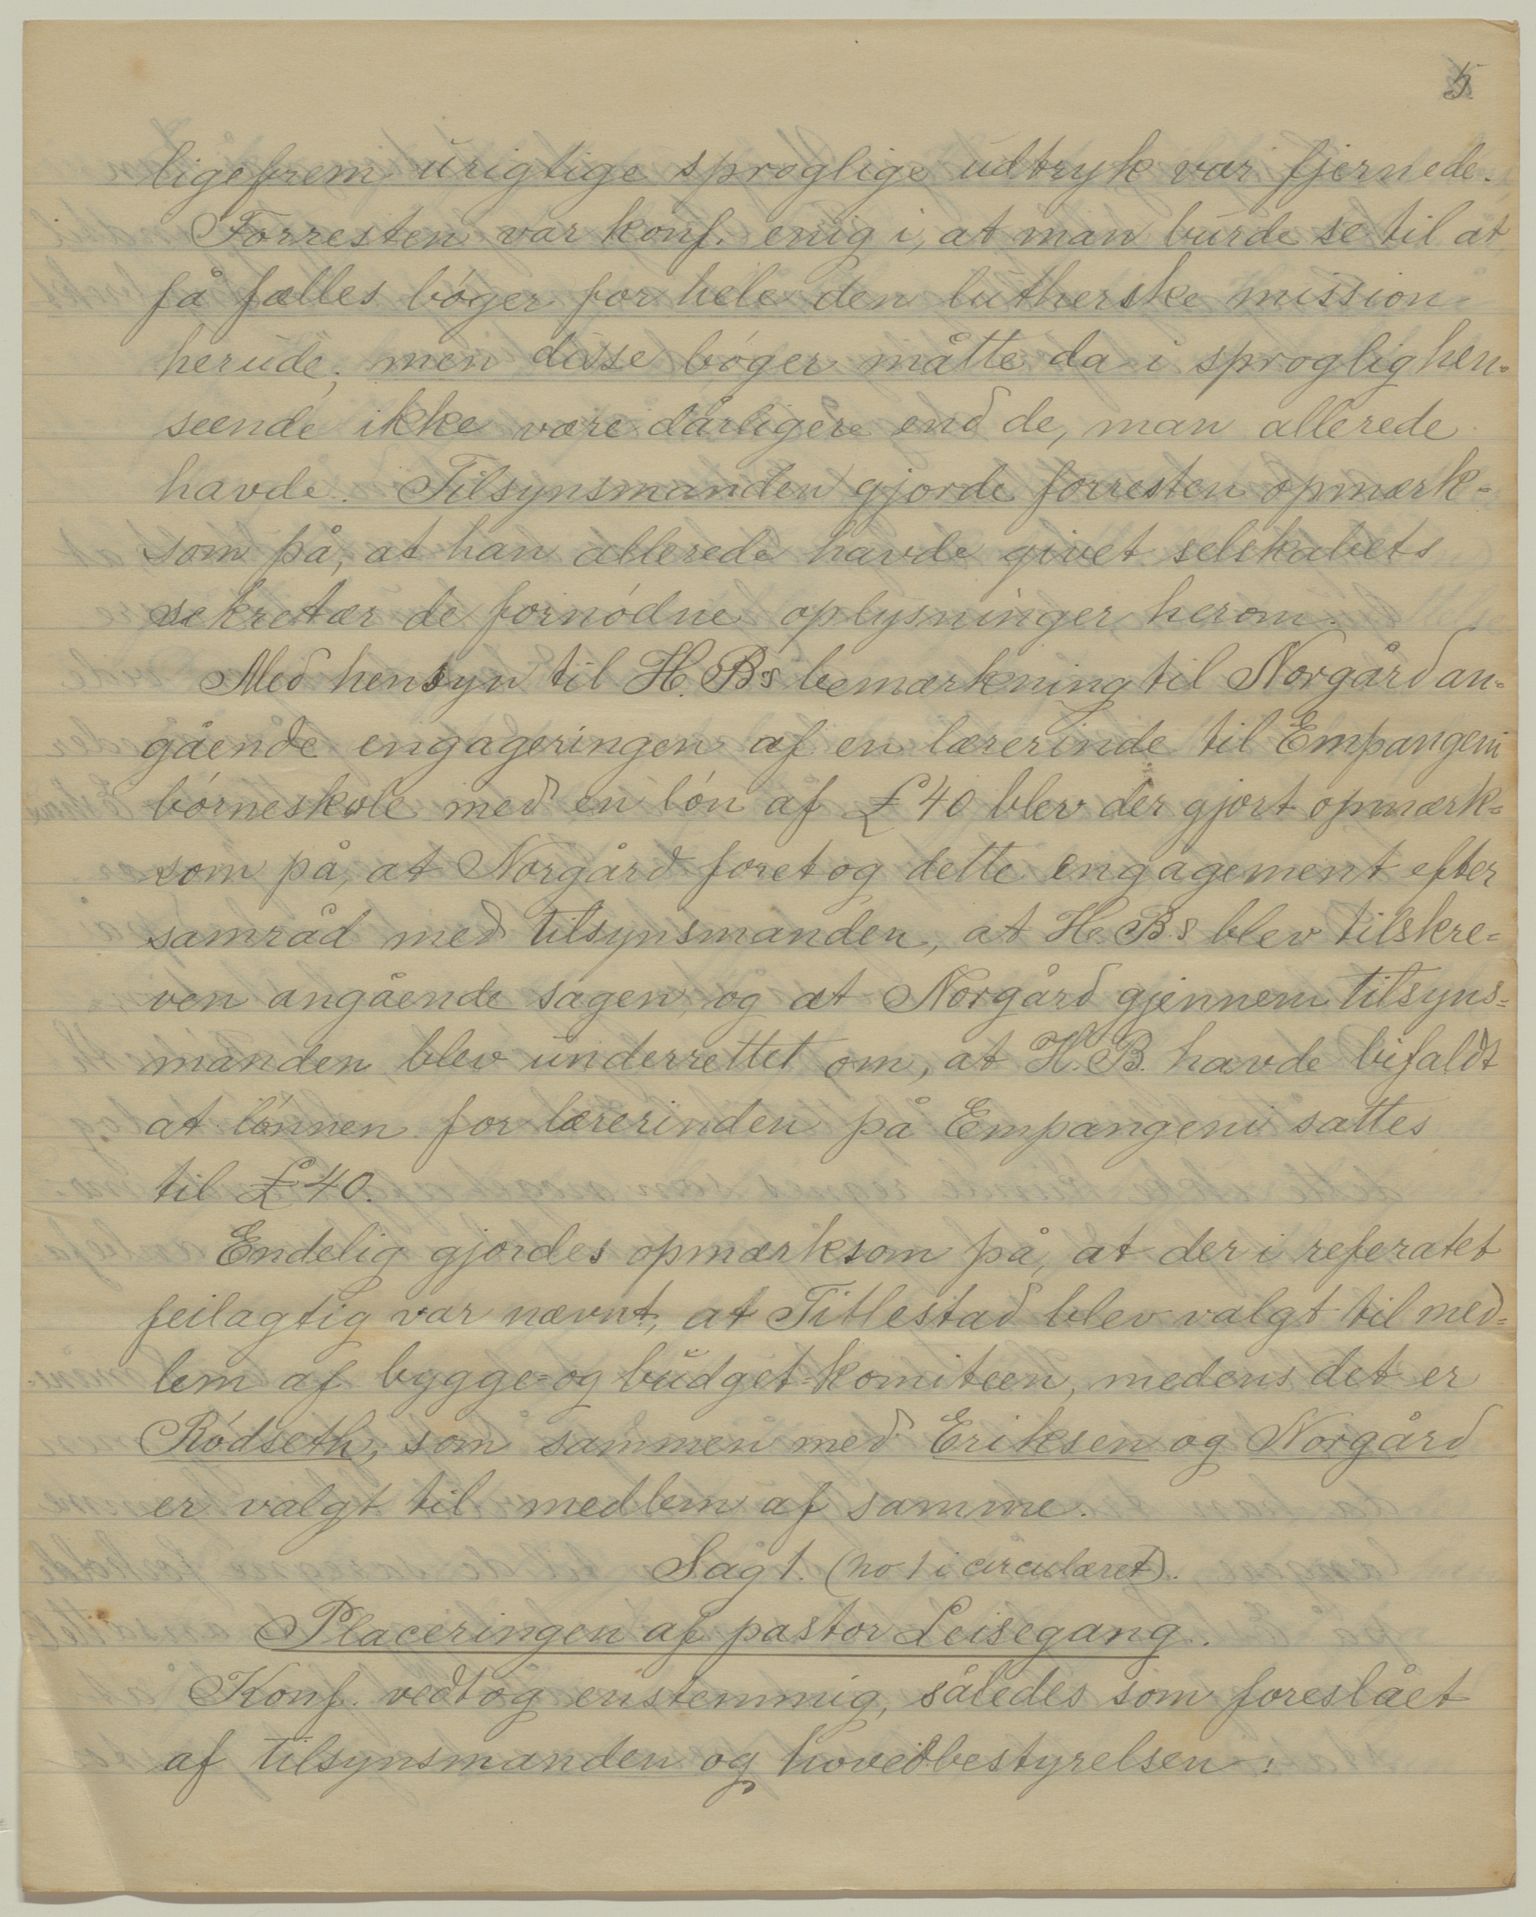 5.
ligefrem urigtige sproglige udtryk var fjernede.
Forresten var konf. enig i, at man burde se til at
få fælles bøger for hele den lutherske mission
herude, men disse bøger måtte da i sproglig hen-
seende ikke være dårligere end de, man allerede
havde. Tilsynsmanden gjorde forresten opmærk-
som på, at han allerede havde givet selskabets
sekretær de fornødne oplysninger herom.
Med hensyn til H.B's bemærkning til Norgård an-
gående engageringen af en lærerinde til Empangeni
børneskole med en løn af £40 blev der gjort opmærk-
som på, at Norgård foretog dette engagement efter
samråd med tilsynsmanden, at H.B.s blev tilskre-
ven angående sagen og at Norgård gjennem tilsyns-
manden blev underrettet om, at H.B. havde bifaldt
at lønnen for lærerinden på Empangeni sattes
til £40.
Endelig gjordes opmærksom på, at der i referatet
feilagtig var nævnt, at Titlestad blev valgt til med-
lem af bygge- og budget-komiteen, medens det er
Rødseth, som sammen med Eriksen og Norgård
er valgt til medlem af samme.
Sag 1. (no 1 i circulæret).
Placeringen af pastor Leisegang.
Konf. vedtog enstemmig, således som foreslået
af tilsynsmanden og hovedbestyrelsen: